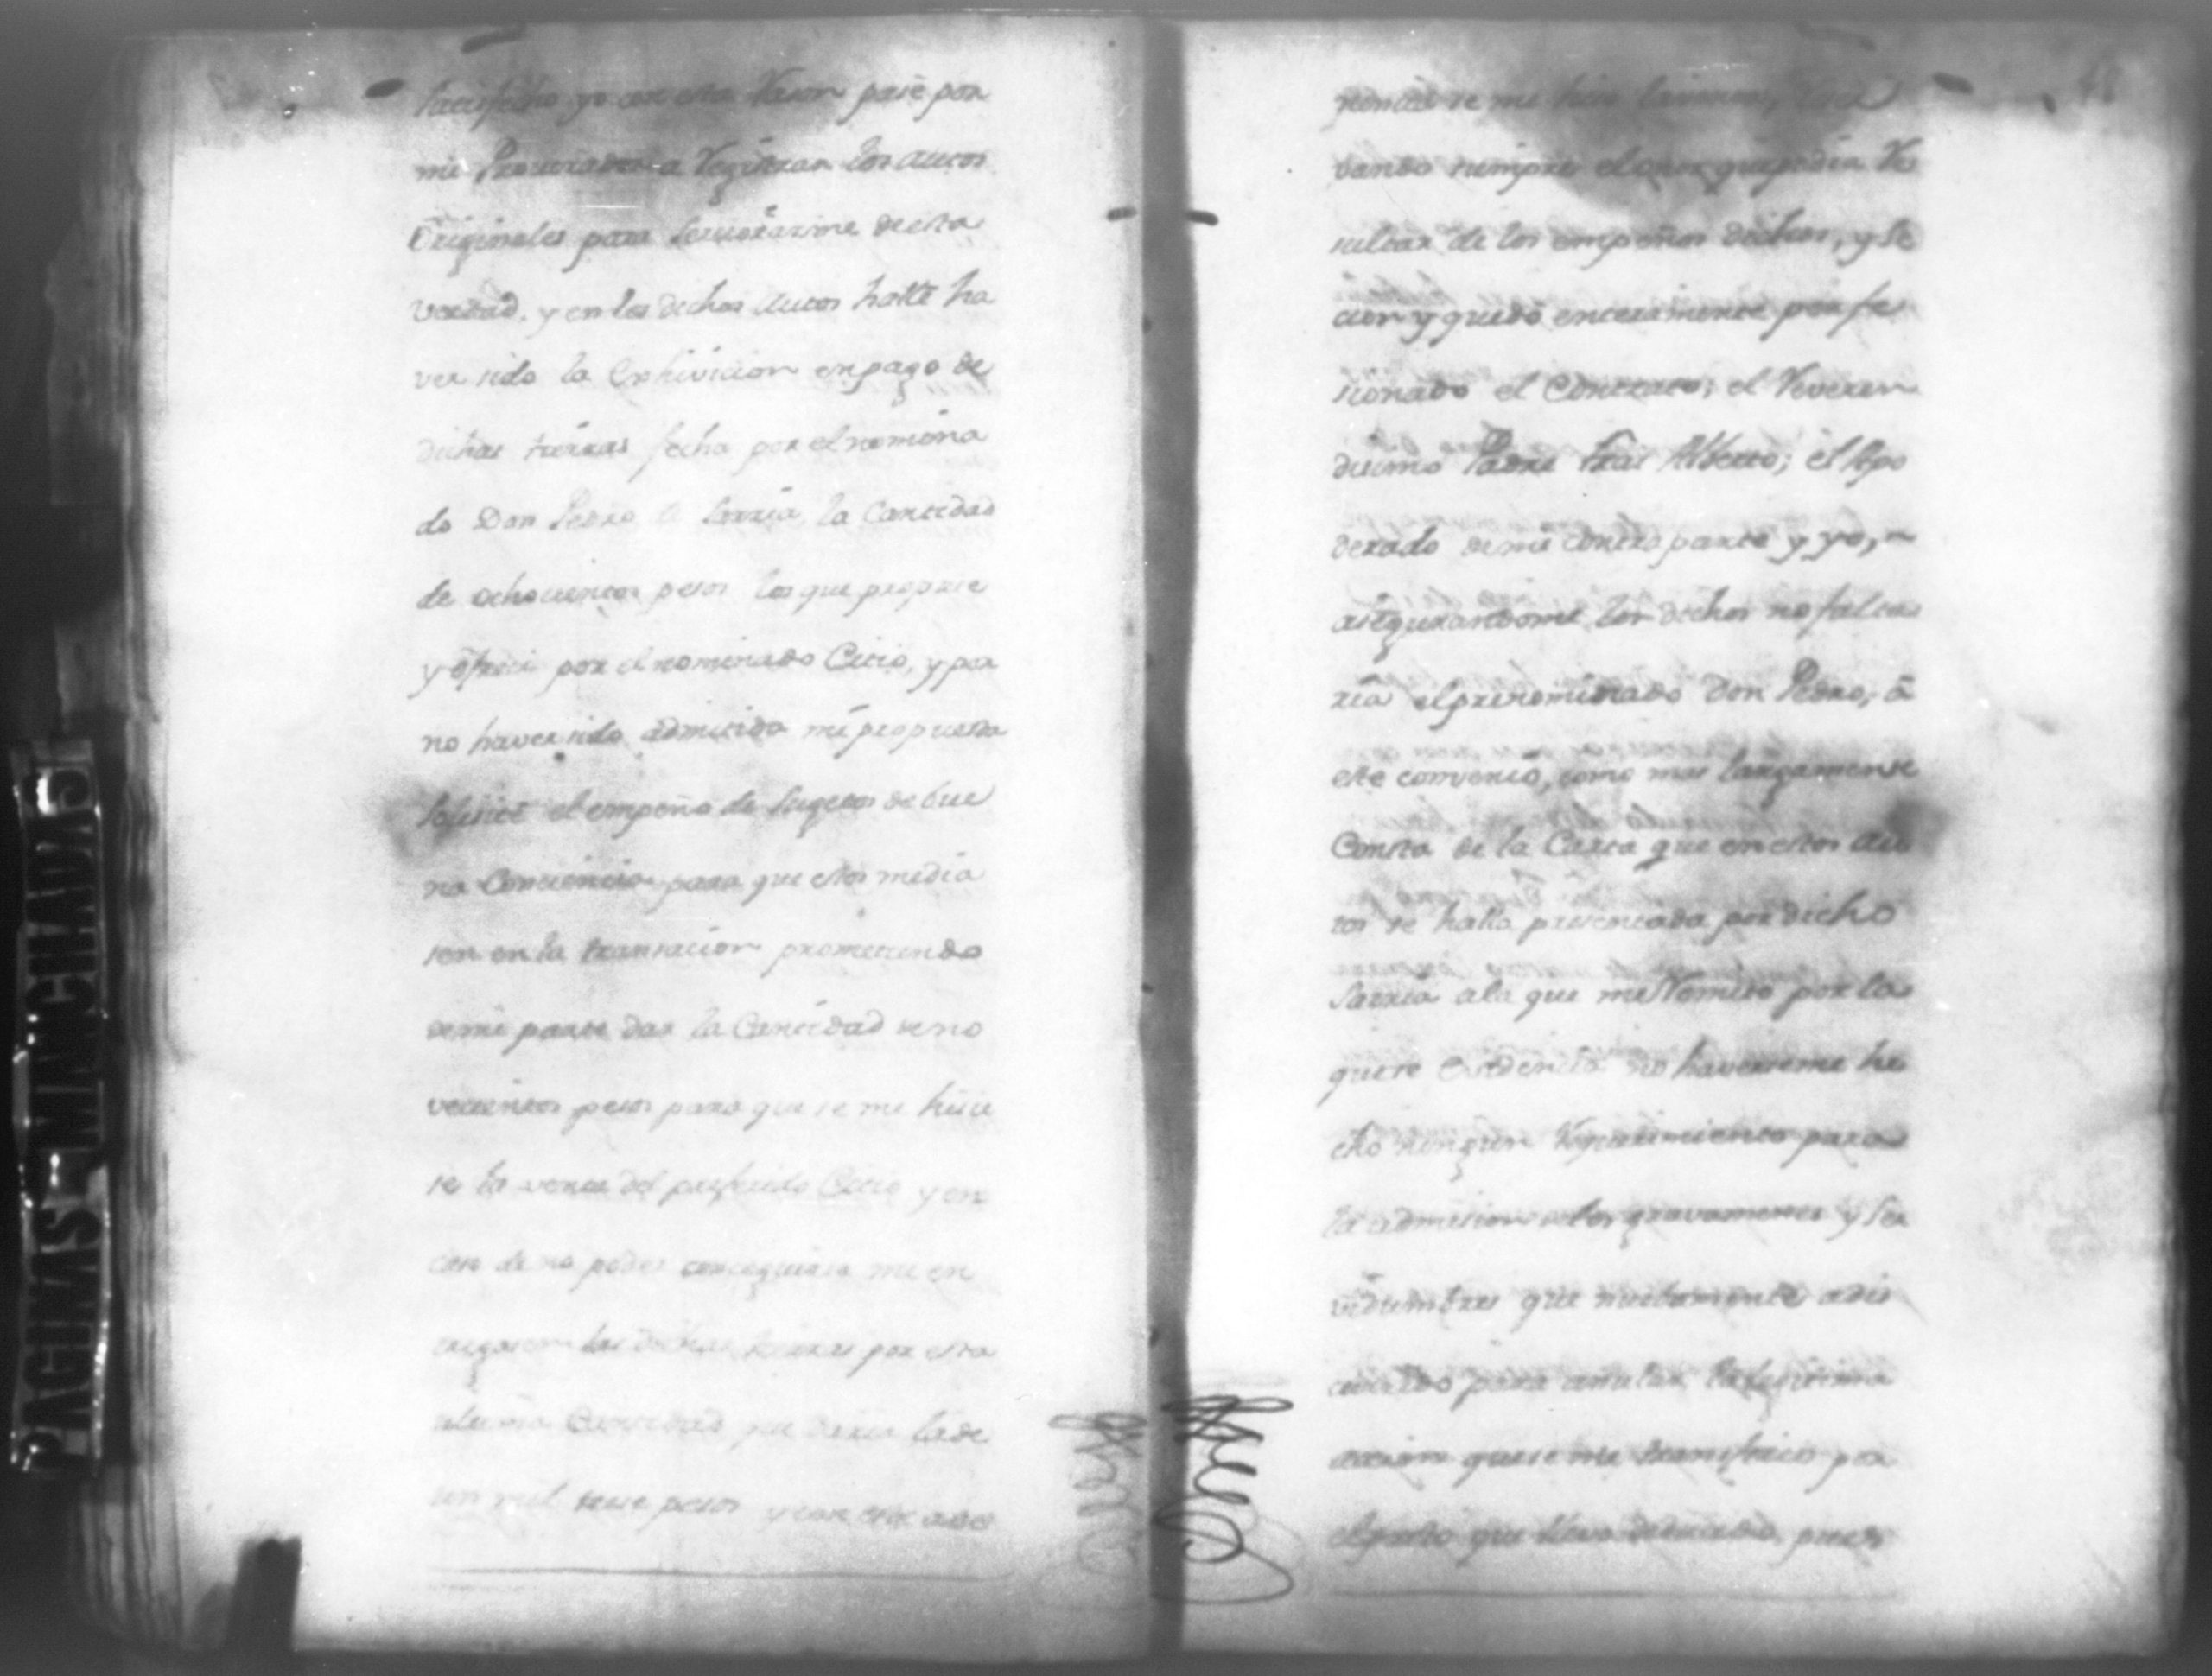 satisfecho yo con esta Razon pasè por
mi Procurador a Registrar los autos
Originales para serciorarme de esta
verdad, y en los dichos Autos hallè ha
ver sido la Exhivicion en pago de
dichas tierras fecha por el nomina
do Don Pedro de Sarria, la Cantidad
de ochocientos pesos los que propuse
y ofreci por el nominado Citio, y por
no haver sido admitida mi propuesta
solicitè el empeño de sugetos de bue
na Conciencia para que estos media
sen en la transacion prometiendo
de mi parte dar la Cantidad de no
vecientos pesos para que se me hicie
se la venta del preferido Citio y en
caso de no poder conseguirlo me en
las dichas tierras por esta
ultima Cantidad que daria la de
un mil pesos y con este
se me
vando siempre el que podia Re
sultar de los empeños dichos, y se
cion y quedò enteramente perfe
sionado el Contrato; el Reveren
disimo Padre Frai Alberto; el Apo
derado de mi contraparte y yo,
asegurandome los dichos no falta
ria el prenominado Don Pedro, â
este convenio, como mas largamente
Consta de la Carta que en estos au
tos se halla presentada por dicho
Sarria ala que me Remito por la
que se Evidencia no haverseme he
cho ningun Requerimiento para
la admision de los gravamenes y ser
vidumbres que nuebamente
para anular la
accion que se me transfirio por
el que llevo deducido, pues
PAGINAS MANCHADAS